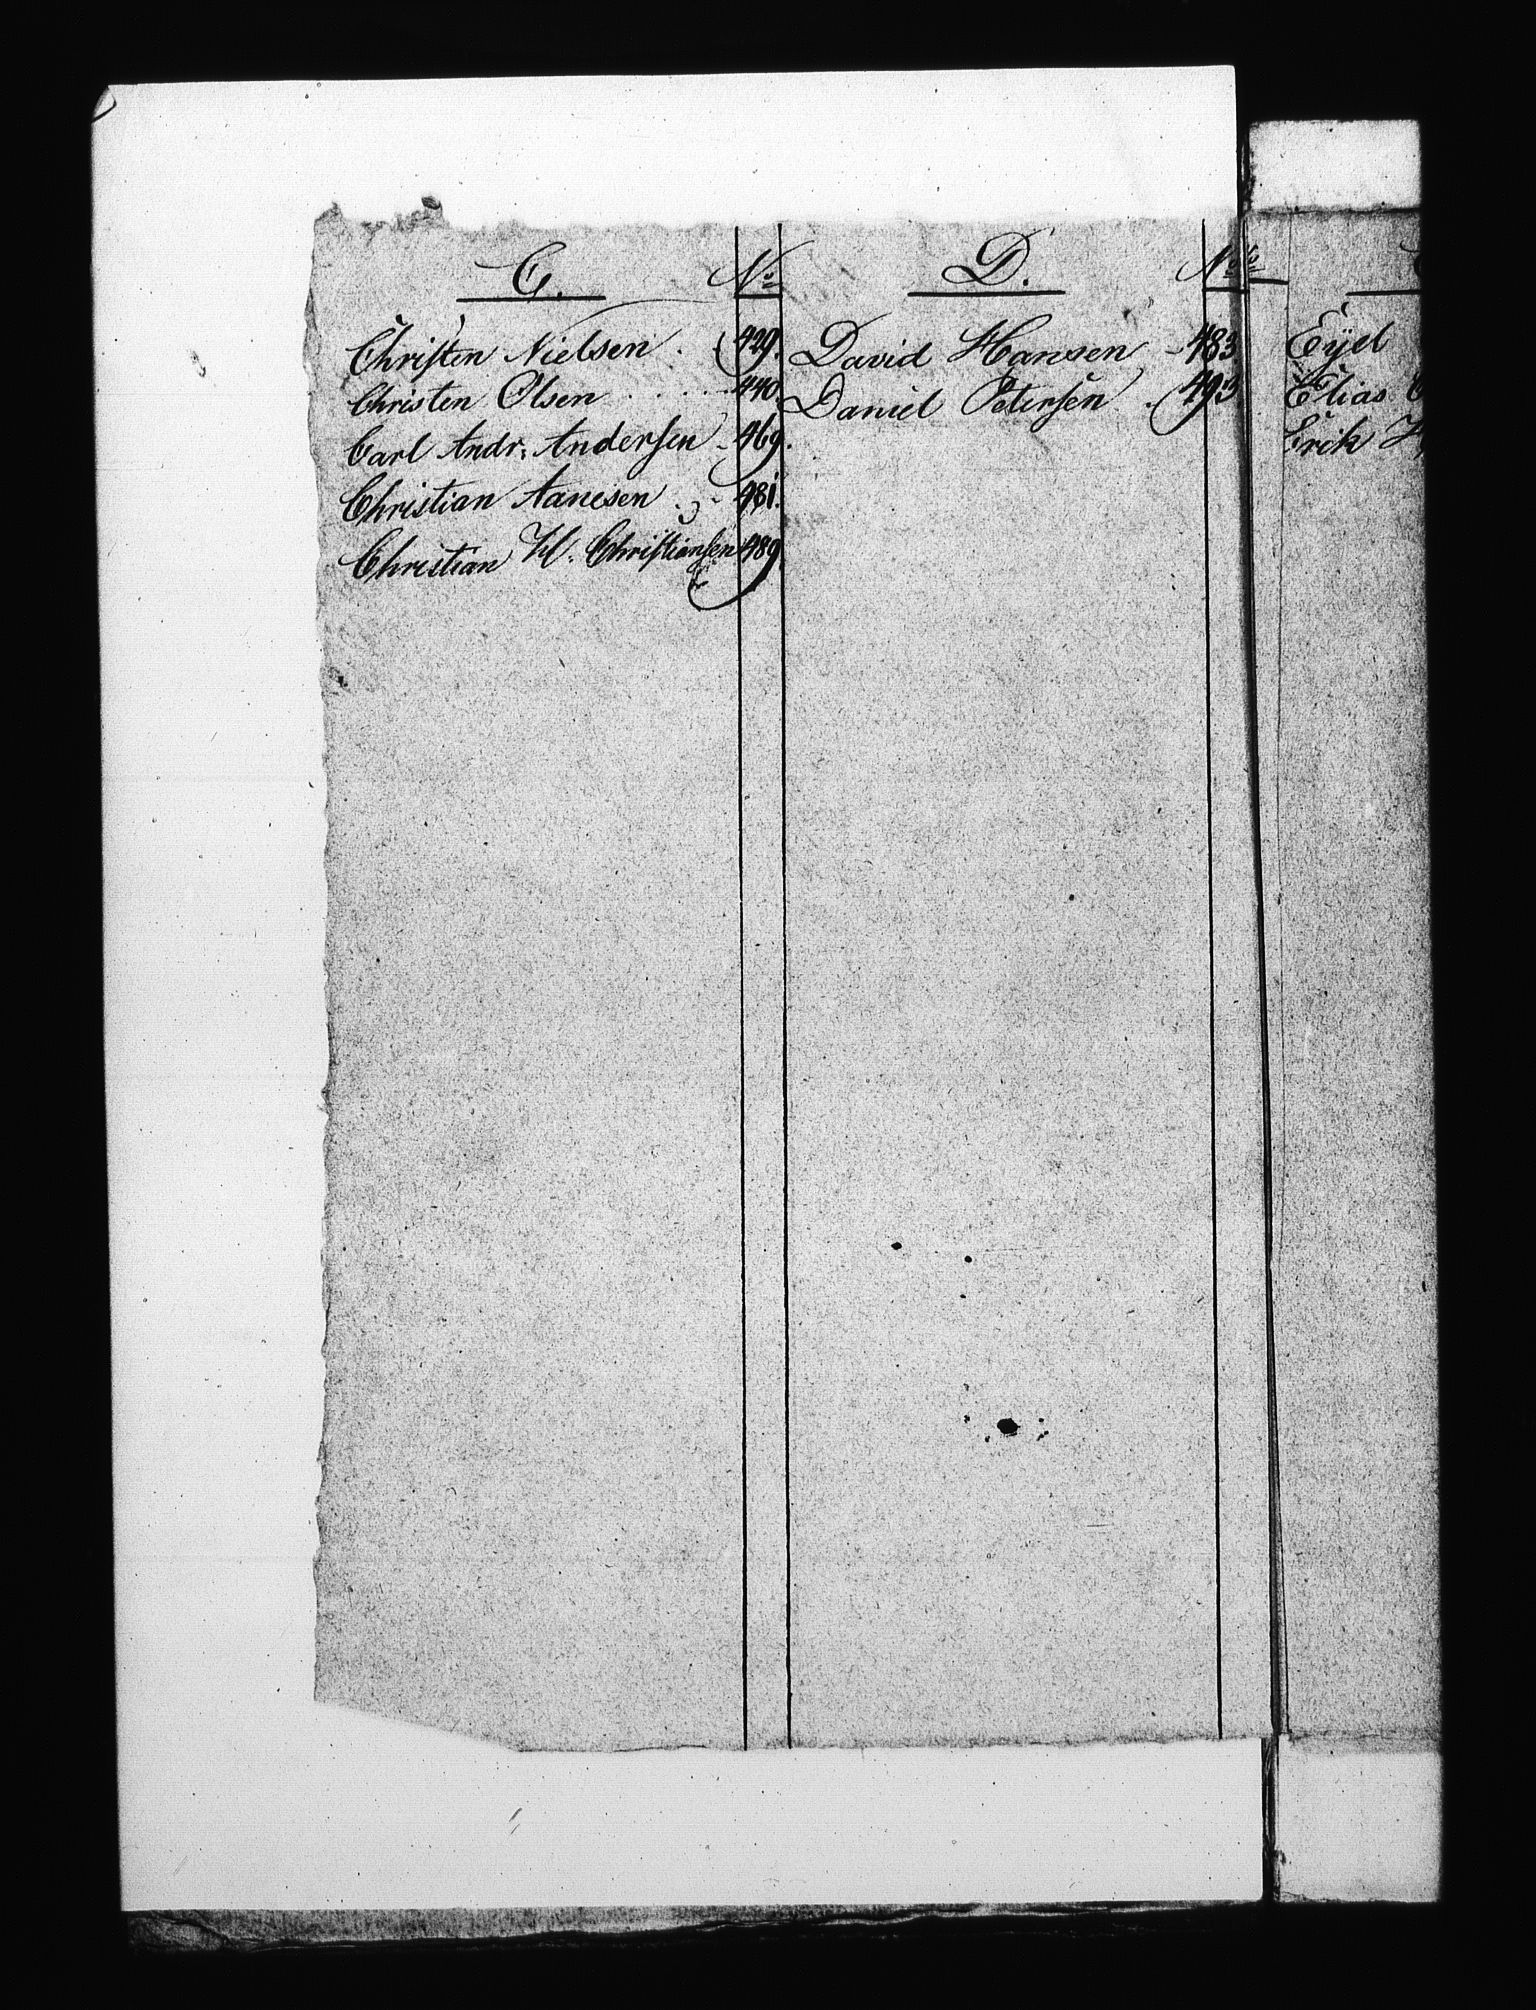 C.
No
Christen Nielsen . 429.
Christen Olsen . . . . . 440.
Carl Andr: Andersen - 469.
Christian Aanesen . - 481.
Christian H. Christiansen 489
D.
No
David Hansen - 483
Daniel Petersen . 493
Eyel
Elias
Erik